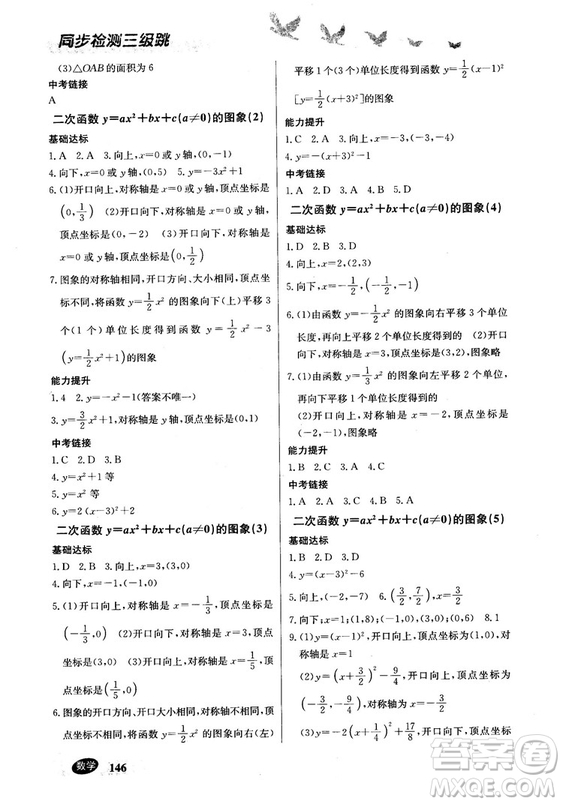 同步检测三级跳
(3)△OAB的面积为6
中考链接
A
二次函数 y=ax²+bx+c(a≠0)的图象(2)
基础达标
1.A 2.A 3.向上,x=0或y轴,(0,-1)
4.向下,x=0或y轴,(0,1) 5.y=-3x²+1
6.(1)开口向上,对称轴是x=0或y轴,顶点坐标是
(0,1/3) (2)开口向下,对称轴是x=0或y
轴,顶点坐标是(0,1/2)
7.图象的对称轴相同,开口方向、大小相同,顶点坐
标不同,将函数y=1/2x²的图象向下(上)平移3
个(1个)单位长度得到函数y=1/2x²-3
[y=1/2x²+1]的图象
能力提升
1.4 2.y=-x²-1(答案不唯一)
3.向上,对称轴为y轴,顶点坐标是
中考链接
1.C 2.D 3.D
4.y=x²+1等
5.y=x²等
6.y=2(x-3)²+2
二次函数 y=ax²+bx+c(a≠0)的图象(3)
基础达标
1.D 2.A 3.向上,x=3,(3,0)
4.向下,x=-2,(-2,0)
5.(1)开口向上,对称轴是x=-1/3,顶点坐标是
(-1/3,0) (2)开口向下,对称轴是x=1/5,顶
点坐标是(1/5,0)
6.图象的开口方向、大小相同,对称轴不同,顶点坐
标不同,将函数y=1/2x²的图象向右(左)
平移1个(3个)单位长度得到函数y=1/2(x-1)²
[y=1/2(x+3)²]的图象
能力提升
1.C 2.C 3.A
4.y=-(x+3)²
中考链接
1.D 2.A
二次函数 y=ax²+bx+c(a≠0)的图象(4)
基础达标
1.D 2.A 3.D
4.向上,x=2,(2,3)
5.向下,x=-1/2,(-1/2,-1)
6.(1)由函数y=-1/2x²的图象向右平移2个单位
长度,再向上平移2个单位长度得到的 (2)开口
向下,对称轴是x=2,顶点坐标是(2,2),图象略
7.(1)由函数y=1/2x²的图象向左平移2个单位,
再向下平移1个单位长度得到的
(2)开口向上,对称轴是直线x=-2,顶点坐标是
(-2,-1),图象略
能力提升
1.B 2.C
中考链接
1.C 2.A 3.D
二次函数 y=ax²+bx+c(a≠0)的图象(5)
基础达标
1.A 2.B 3.D
5.向上,(-2,-7)
7.向下;x=1;(1,8);(-1,0),(3,0);(0,6) 8.1
9.(1)y=(x-1)²,开口方向向上,顶点坐标为(1,0),对
称轴为x=1
数学 146
答案圈
MXQE.COM